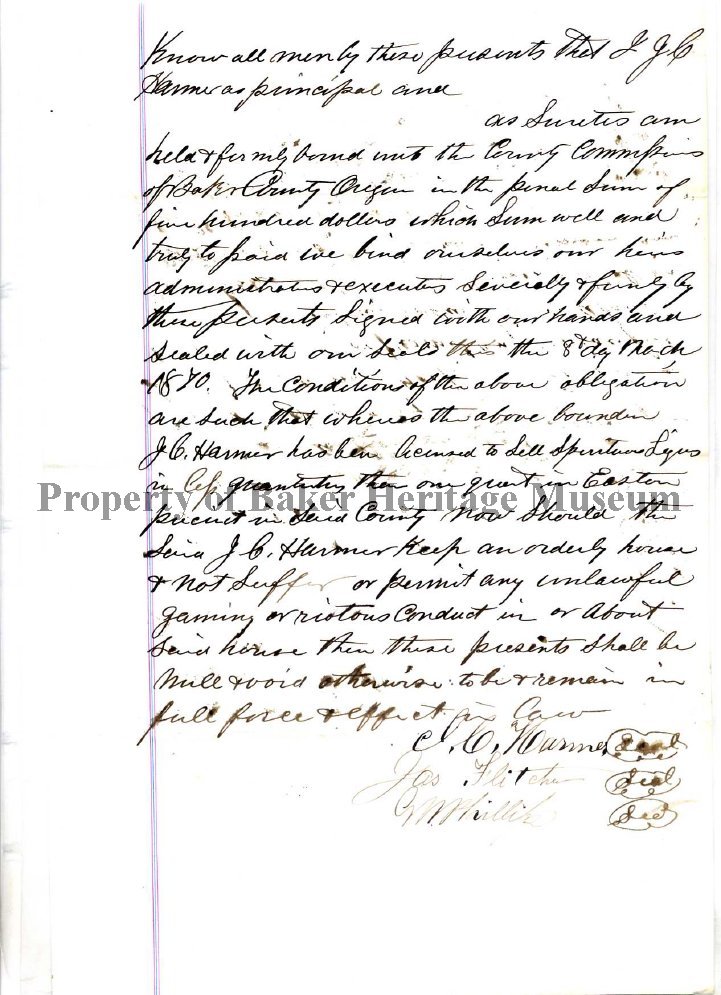 Know all men by these presents that I J C
Harmer as principal and
as Suretis am
held & firmly bound unto the County Commissins
of Baker County Origin in the penal Sum of
five hundred dollars which Sum well and
truly to paid we bind ourselves our heirs
administrators & executes Severely & firmly by
these presents Signed with our hands and
Sealed with our Seals this the 8 dy March
1870. The Conditions of the above obligation
are Such that wheres the above bounden
J. C. Harmer has been licensed to Sell Spiritous Liqrs
in Less quantity than one quart in Eastern
Property of Baker Heritage Museum
precinct in Said County Now Should the
Said J. C. Harmer Keep an orderly house
& not Suffer or permit any unlawful
gaming or riotous Conduct in or About
Said house then these presents Shall be
Null & void otherwise to be & remain in
full force & effect in Law
J. C. Harmer Seal
Jas Flitcher Seal
Seal